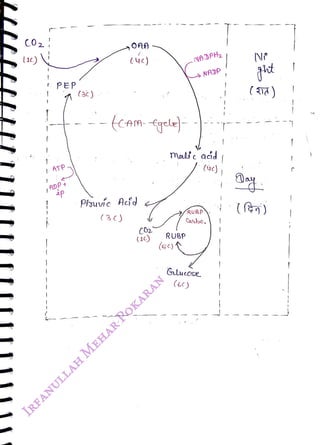 CO2
(1C)
OAA
(4C)
NADPH2
NADP
Ni
ght
(रात)
PEP
(3C)
(CAM Cycle)
Malic acid
(4C)
ATP
ADP +
iP
Pyruvic Acid
(3C)
CO2
(1C)
RUBP
Carbo.
RUBP
(5C)
Glucose
(6C)
Day
(दिन)
IRFANULLAH MEHAR POKARAN